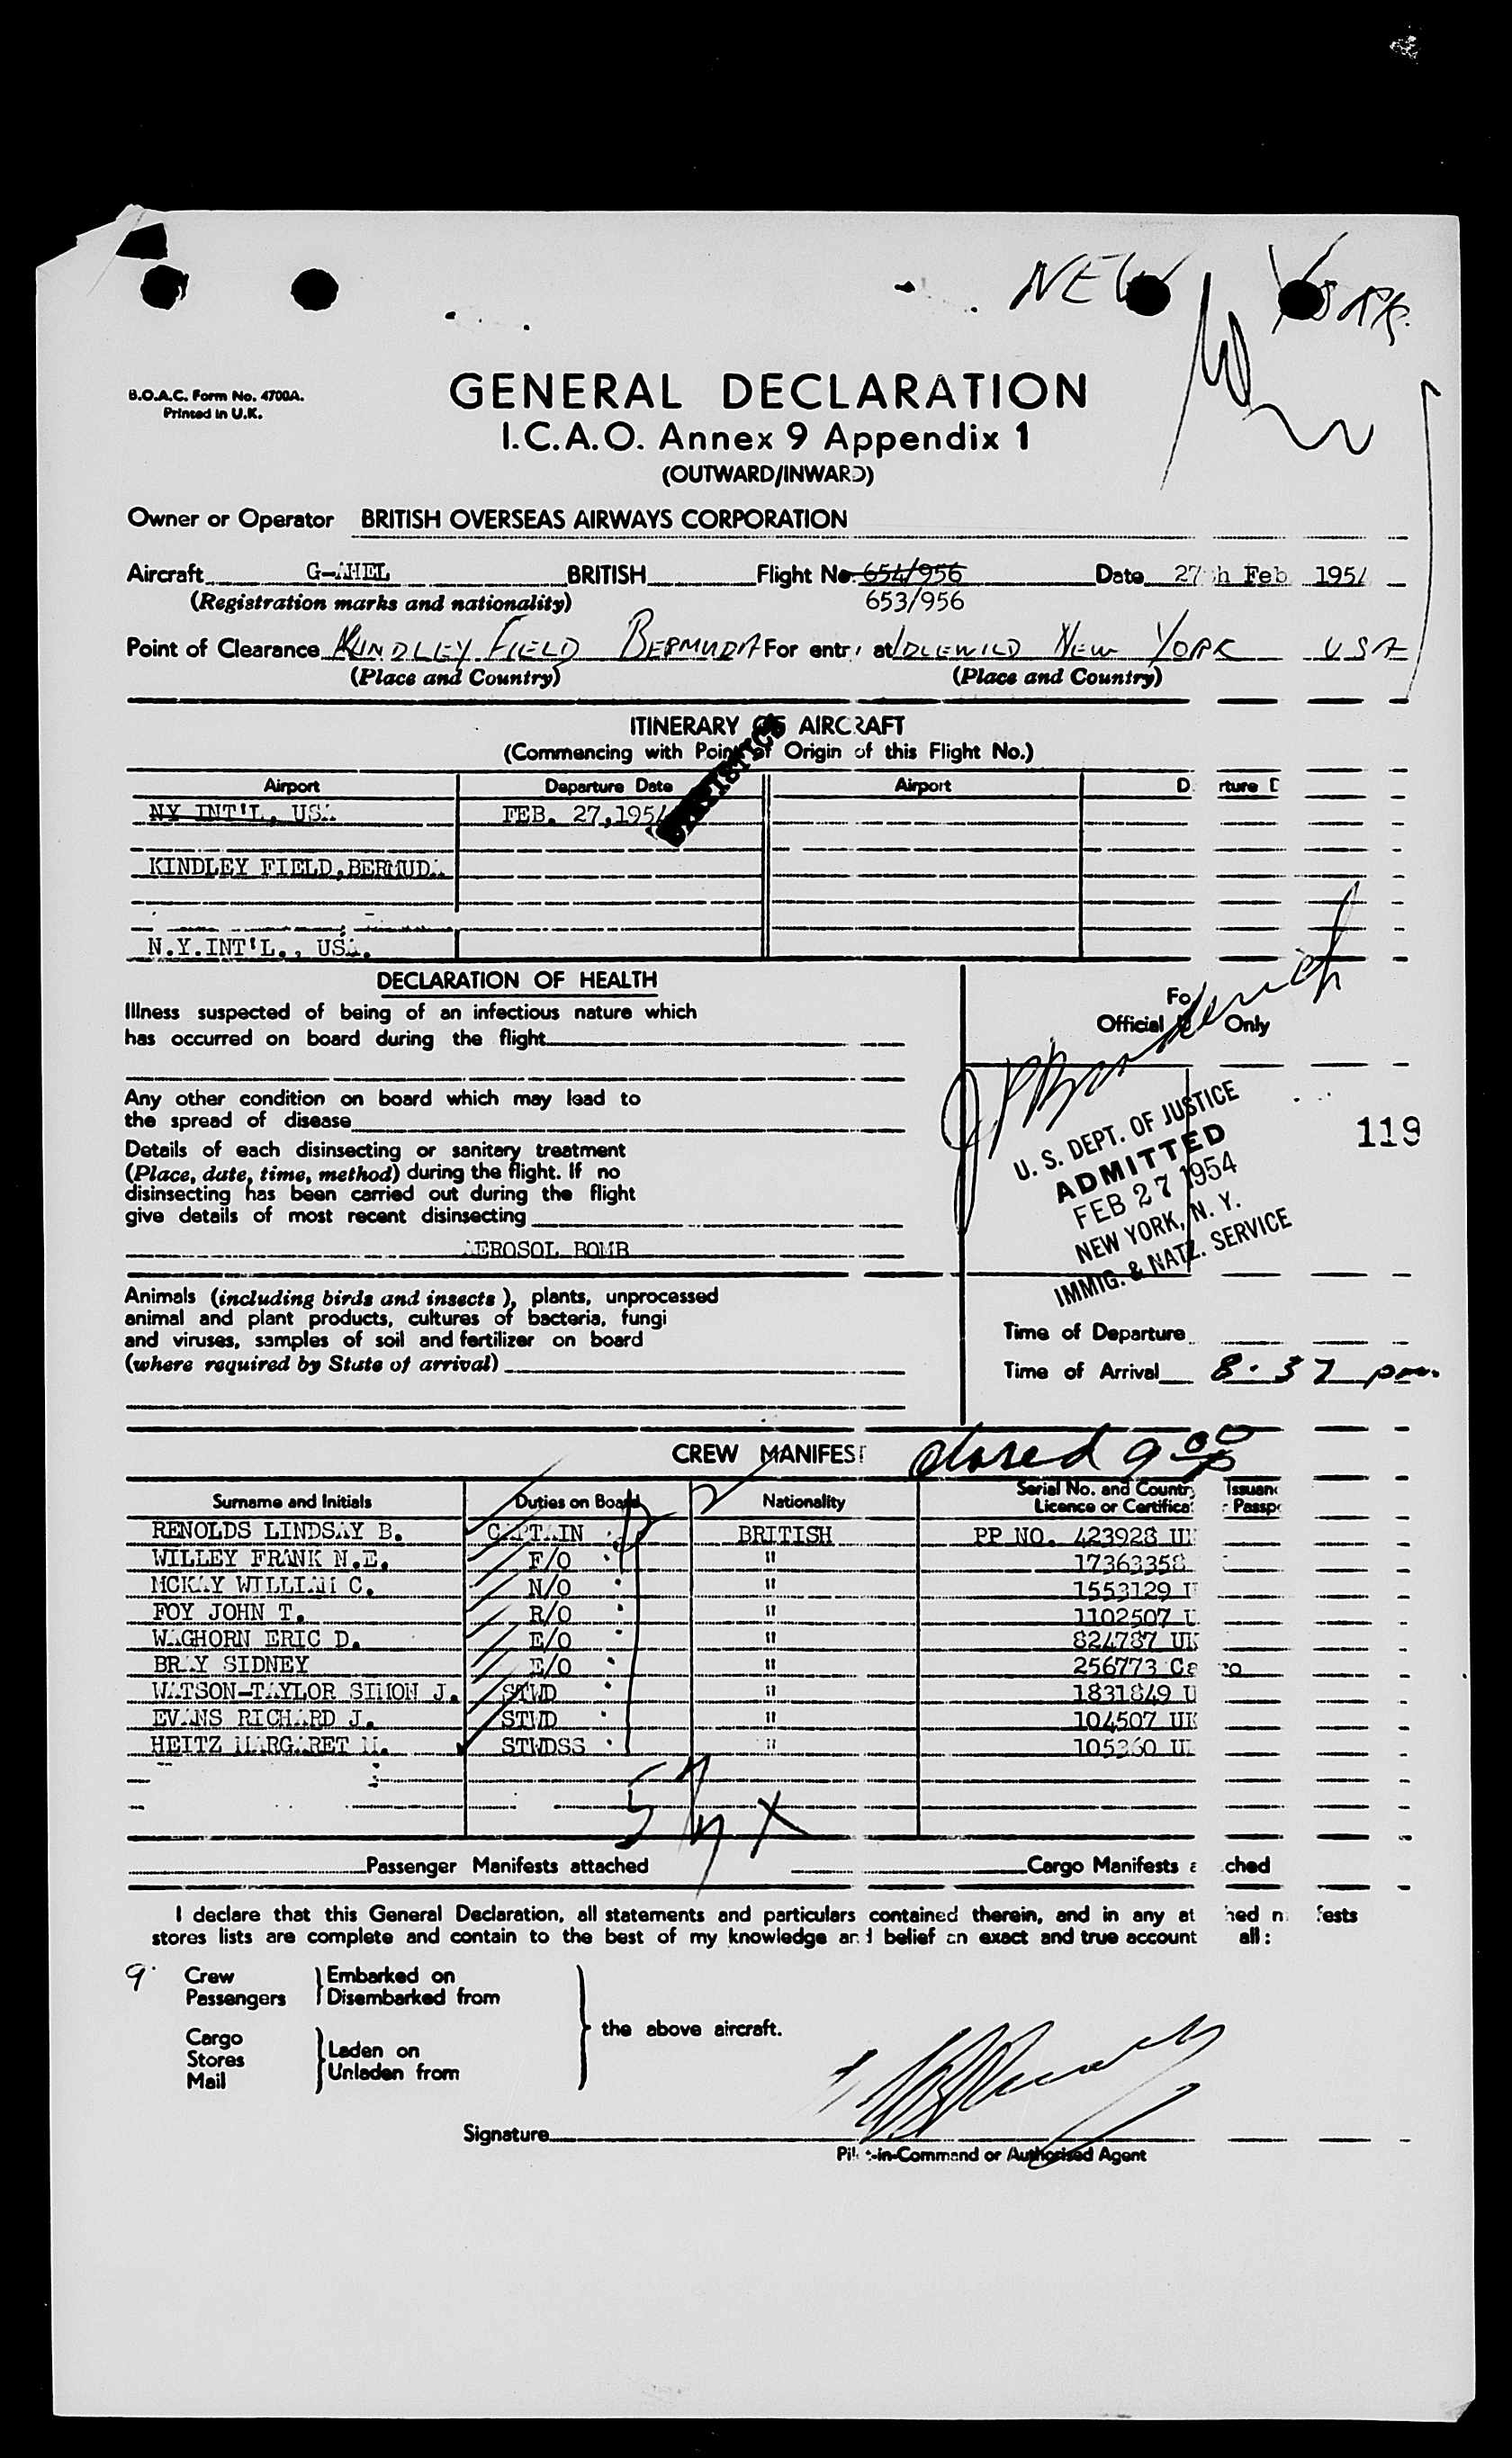 NEW YORK.
B.O.A.C. Form No. 4700A.
Printed in U.K.
GENERAL DECLARATION
I.C.A.O. Annex 9 Appendix 1
(OUTWARD/INWARD)
Owner or Operator BRITISH OVERSEAS AIRWAYS CORPORATION
Aircraft G-AHEL BRITISH Flight No. 654/956 Date 27th Feb 1954
(Registration marks and nationality) 653/956
Point of Clearance KINDLEY FIELD BERMUDA For entry at IDLEWILD NEW YORK USA
(Place and Country) (Place and Country)
ITINERARY OF AIRCRAFT
(Commencing with Point of Origin of this Flight No.)
STATISTICS
Airport Departure Date Airport Departure D
NY INT'L, USA FEB. 27,1954
KINDLEY FIELD,BERMUDA
N.Y.INT'L., USA.
DECLARATION OF HEALTH
Illness suspected of being of an infectious nature which
has occurred on board during the flight
Any other condition on board which may lead to
the spread of disease
Details of each disinsecting or sanitary treatment
(Place, date, time, method) during the flight. If no
disinsecting has been carried out during the flight
give details of most recent disinsecting
AEROSOL BOMB
Animals (including birds and insects), plants, unprocessed
animal and plant products, cultures of bacteria, fungi
and viruses, samples of soil and fertilizer on board
(where required by State of arrival)
For
Official Use Only
U. S. DEPT. OF JUSTICE
ADMITTED
FEB 27 1954
NEW YORK, N. Y.
IMMIG. & NATZ. SERVICE
119
Time of Departure
Time of Arrival 8.37 pm.
CREW MANIFEST closed 9 00 p
Surname and Initials Duties on Board Nationality Serial No. and Country Issuan
Licence or Certificat r Passp
RENOLDS LINDSAY B. CAPTAIN BRITISH PP NO. 423928 UK
WILLEY FRANK N.E. F/O " 17363358
MCKAY WILLIAM C. N/O " 1553129 U
FOY JOHN T. R/O " 1102507 U
WAGHORN ERIC D. E/O " 824787 UK
BRAY SIDNEY E/O " 256773 Ca ro
WATSON-TAYLOR SIMON J. STWD " 1831849 U
EVANS RICHARD J. STWD " 104507 UK
HEITZ MARGARET M. STWDSS " 105360 UK
Passenger Manifests attached Cargo Manifests a ched
I declare that this General Declaration, all statements and particulars contained therein, and in any at hed n fests
stores lists are complete and contain to the best of my knowledge and belief an exact and true account all:
9 Crew Embarked on
Passengers Disembarked from
the above aircraft.
Cargo
Stores Laden on
Mail Unladen from
Signature
Pilot-in-Command or Authorised Agent